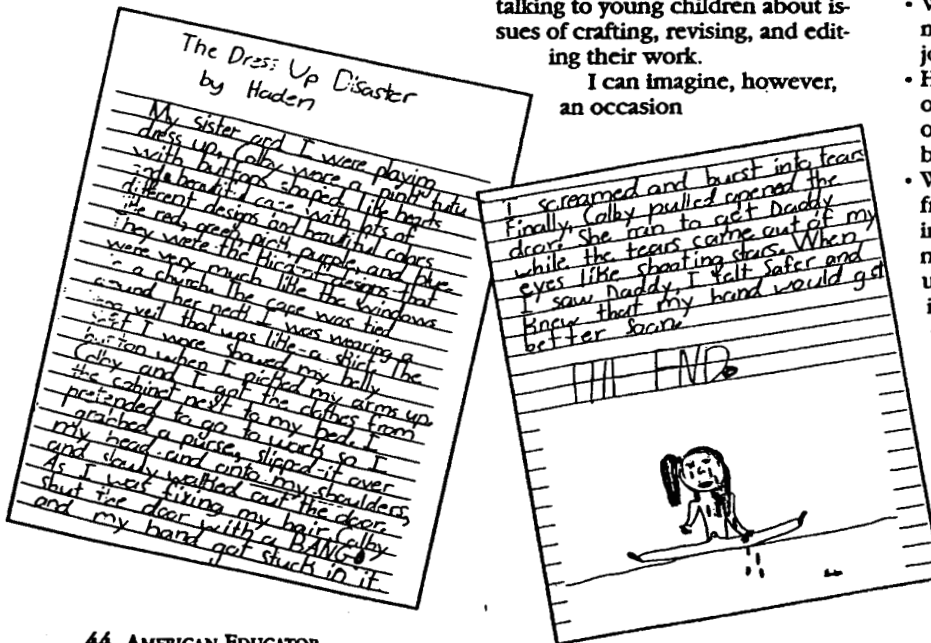 talking to young children about is-
sues of crafting, revising, and edit-
ing their work.
I can imagine, however,
an occasion
The Dress Up Disaster
by Haden
My sister and I were playing
dress up. Colby wore a pink tutu
with buttons shaped like hearts
and a beautiful cape with lots of
different designs and beautiful colors
like red, green, pink, purple, and blue.
They were the kind of designs that
were very much like the windows
in a church. The cape was tied
around her neck. I was wearing a
long veil that was like a stick. The
I wore showed my belly
button when I picked my arms up.
Colby and I got the clothes from
the cabinet next to my bed. I
pretended to go to work so I
grabbed a purse, slipped it over
my head and onto my shoulders,
and slowly walked out the door.
As I was fixing my hair Colby
shut the door with a BANG!
and my hand got stuck in it
I screamed and burst into tears
Finally, Colby pulled opened the
door. She ran to get Daddy
while the tears came out of my
eyes like shooting stars. When
I saw Daddy, I felt safer and
knew that my hand would get
better soon.
THE END.
44 AMERICAN EDUCATOR